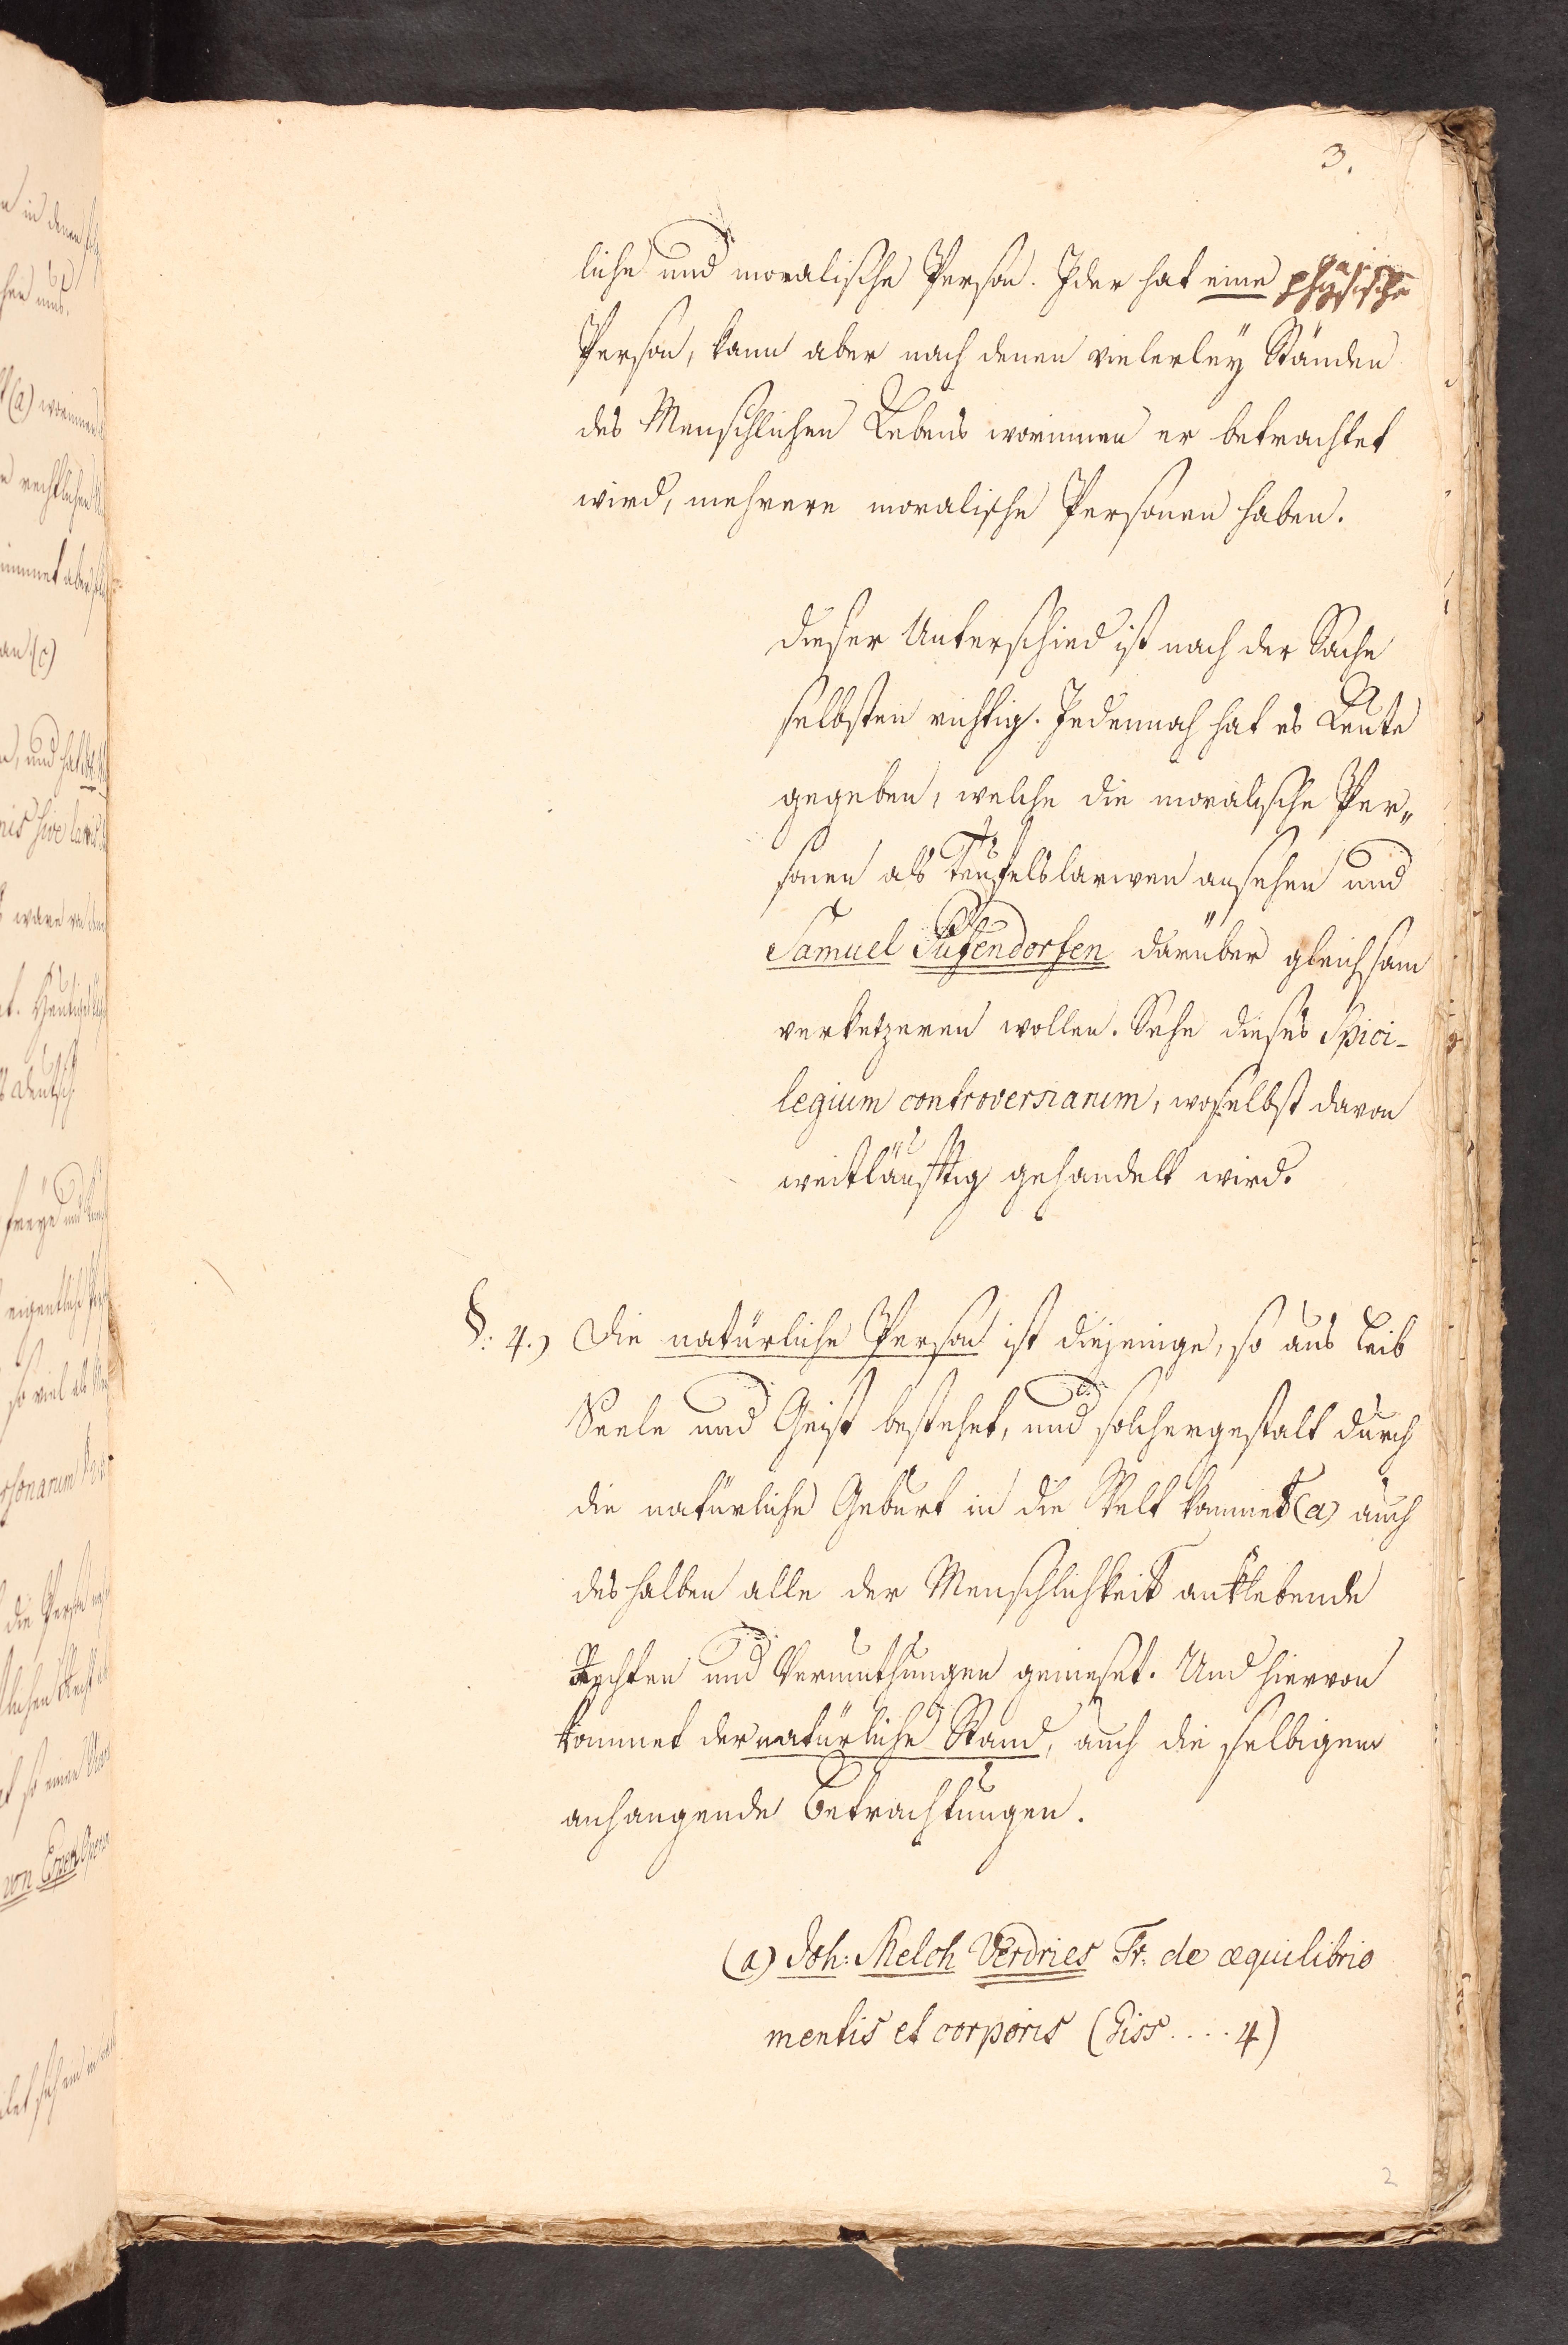 3.
liche und moralische Person. Jder hat eine physische
Person, kann aber nach denen vielerleÿ Ständen
des Menschlichen Lebens worinnen er betrachtet
wird, mehrere moralische Personen haben.
dieser Unterschied ist nach der Sache
selbsten richtig. Jedennoch hat es Leute
gegeben, welche die moralische Per„
sonen als Teufelslarven ansehen und
Samuel Pufendorfen darüber gleichsam
verketzeren wollen. Sehe dieses Spici-
legium controversiarum, woselbst davon
weitläufftig gehandelt wird.
§. 4.) Die natürliche Person ist diejenige, so aus Leib
Seele und Geist bestehet, und solchergestalt durch
die natürliche Geburt in die Welt kommet (a) auch
deshalben alle der Menschlichkeit anklebende
Rechten und Vermuthungen genieset. Und hiervon
kommet der natürliche Stand, auch die selbigem
anhangende Betrachtungen.
(a) Joh: Melch Verdries Tr. de æquilibrio
mentis et corporis (Giss .... 4)
2